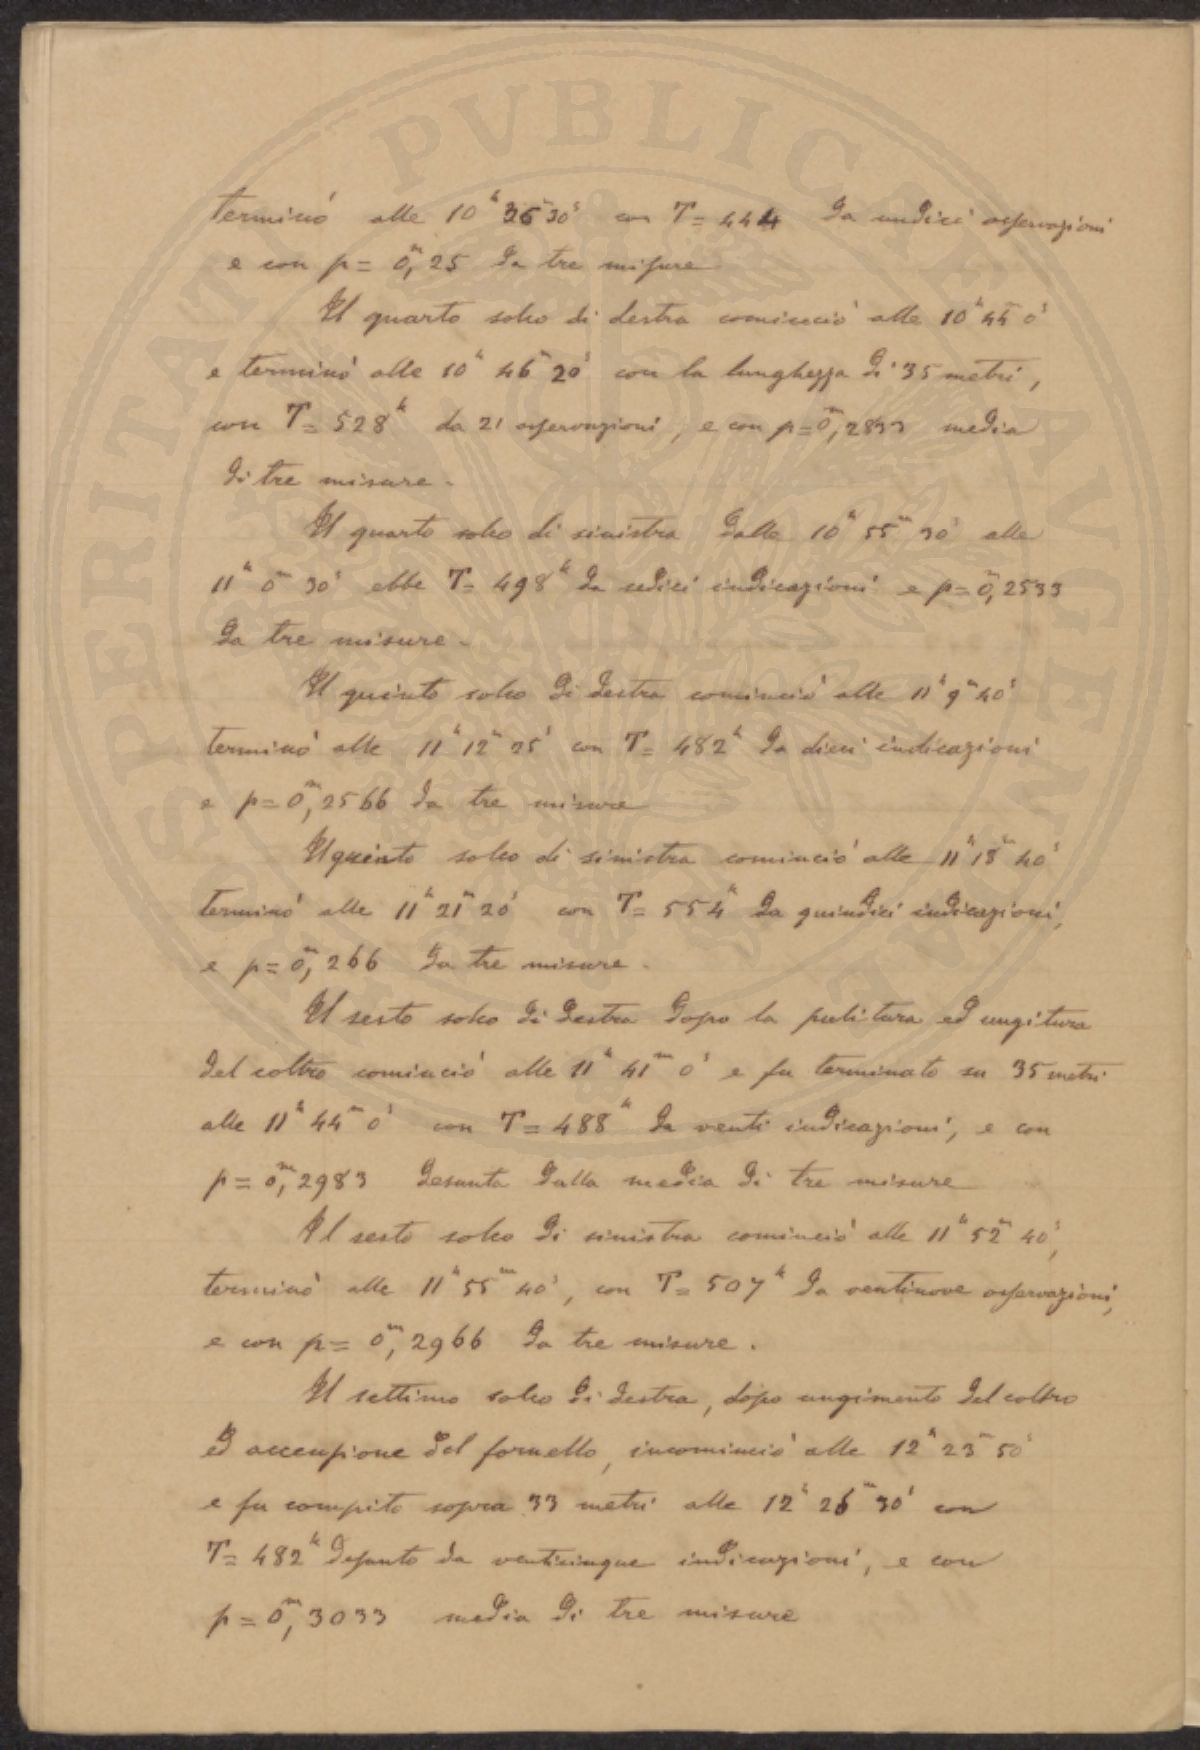 terminò alle 10ʰ 36ᵐ 30ˢ con T = 444 da undici osservazioni
e con p = 0ᵐ, 25 da tre misure
Il quarto solco di destra cominciò alle 10ʰ 44ᵐ 0ˢ
e terminò alle 10ʰ 46ᵐ 20ˢ con la lunghezza di 35 metri,
con T = 528ᵏ da 21 osservazioni, e con p = 0ᵐ, 2833 media
di tre misure.
Il quarto solco di sinistra dalle 10ʰ 55ᵐ 30ˢ alle
11ʰ 0ᵐ 30ˢ ebbe T = 498ᵏ da sedici indicazioni e p = 0ᵐ, 2533
da tre misure.
Il quinto solco di destra cominciò alle 11ʰ 9ᵐ 40ˢ
terminò alle 11ʰ 12ᵐ 25ˢ con T = 482ᵏ da dieci indicazioni
e p = 0ᵐ, 2566 da tre misure
Il quinto solco di sinistra cominciò alle 11ʰ 18ᵐ 40ˢ
terminò alle 11ʰ 21ᵐ 20ˢ con T = 554ᵏ da quindici indicazioni,
e p = 0ᵐ, 266 da tre misure.
Il sesto solco di destra dopo la pulitura ed ungitura
del coltro cominciò alle 11ʰ 41ᵐ 0ˢ e fu terminato su 35 metri
alle 11ʰ 44ᵐ 0ˢ con T = 488ᵏ da venti indicazioni, e con
p = 0ᵐ, 2983 desunta dalla media di tre misure
Il sesto solco di sinistra cominciò alle 11ʰ 52ᵐ 40ˢ,
terminò alle 11ʰ 55ᵐ 40ˢ, con T = 507ᵏ da ventinove osservazioni,
e con p = 0ᵐ, 2966 da tre misure.
Il settimo solco di destra, dopo ungimento del coltro
ed accensione del fornello, incominciò alle 12ʰ 23ᵐ 50ˢ
e fu compito sopra 33 metri alle 12ʰ 26ᵐ 30ˢ con
T = 482ᵏ desunto da venticinque indicazioni, e con
p = 0ᵐ, 3033 media di tre misure